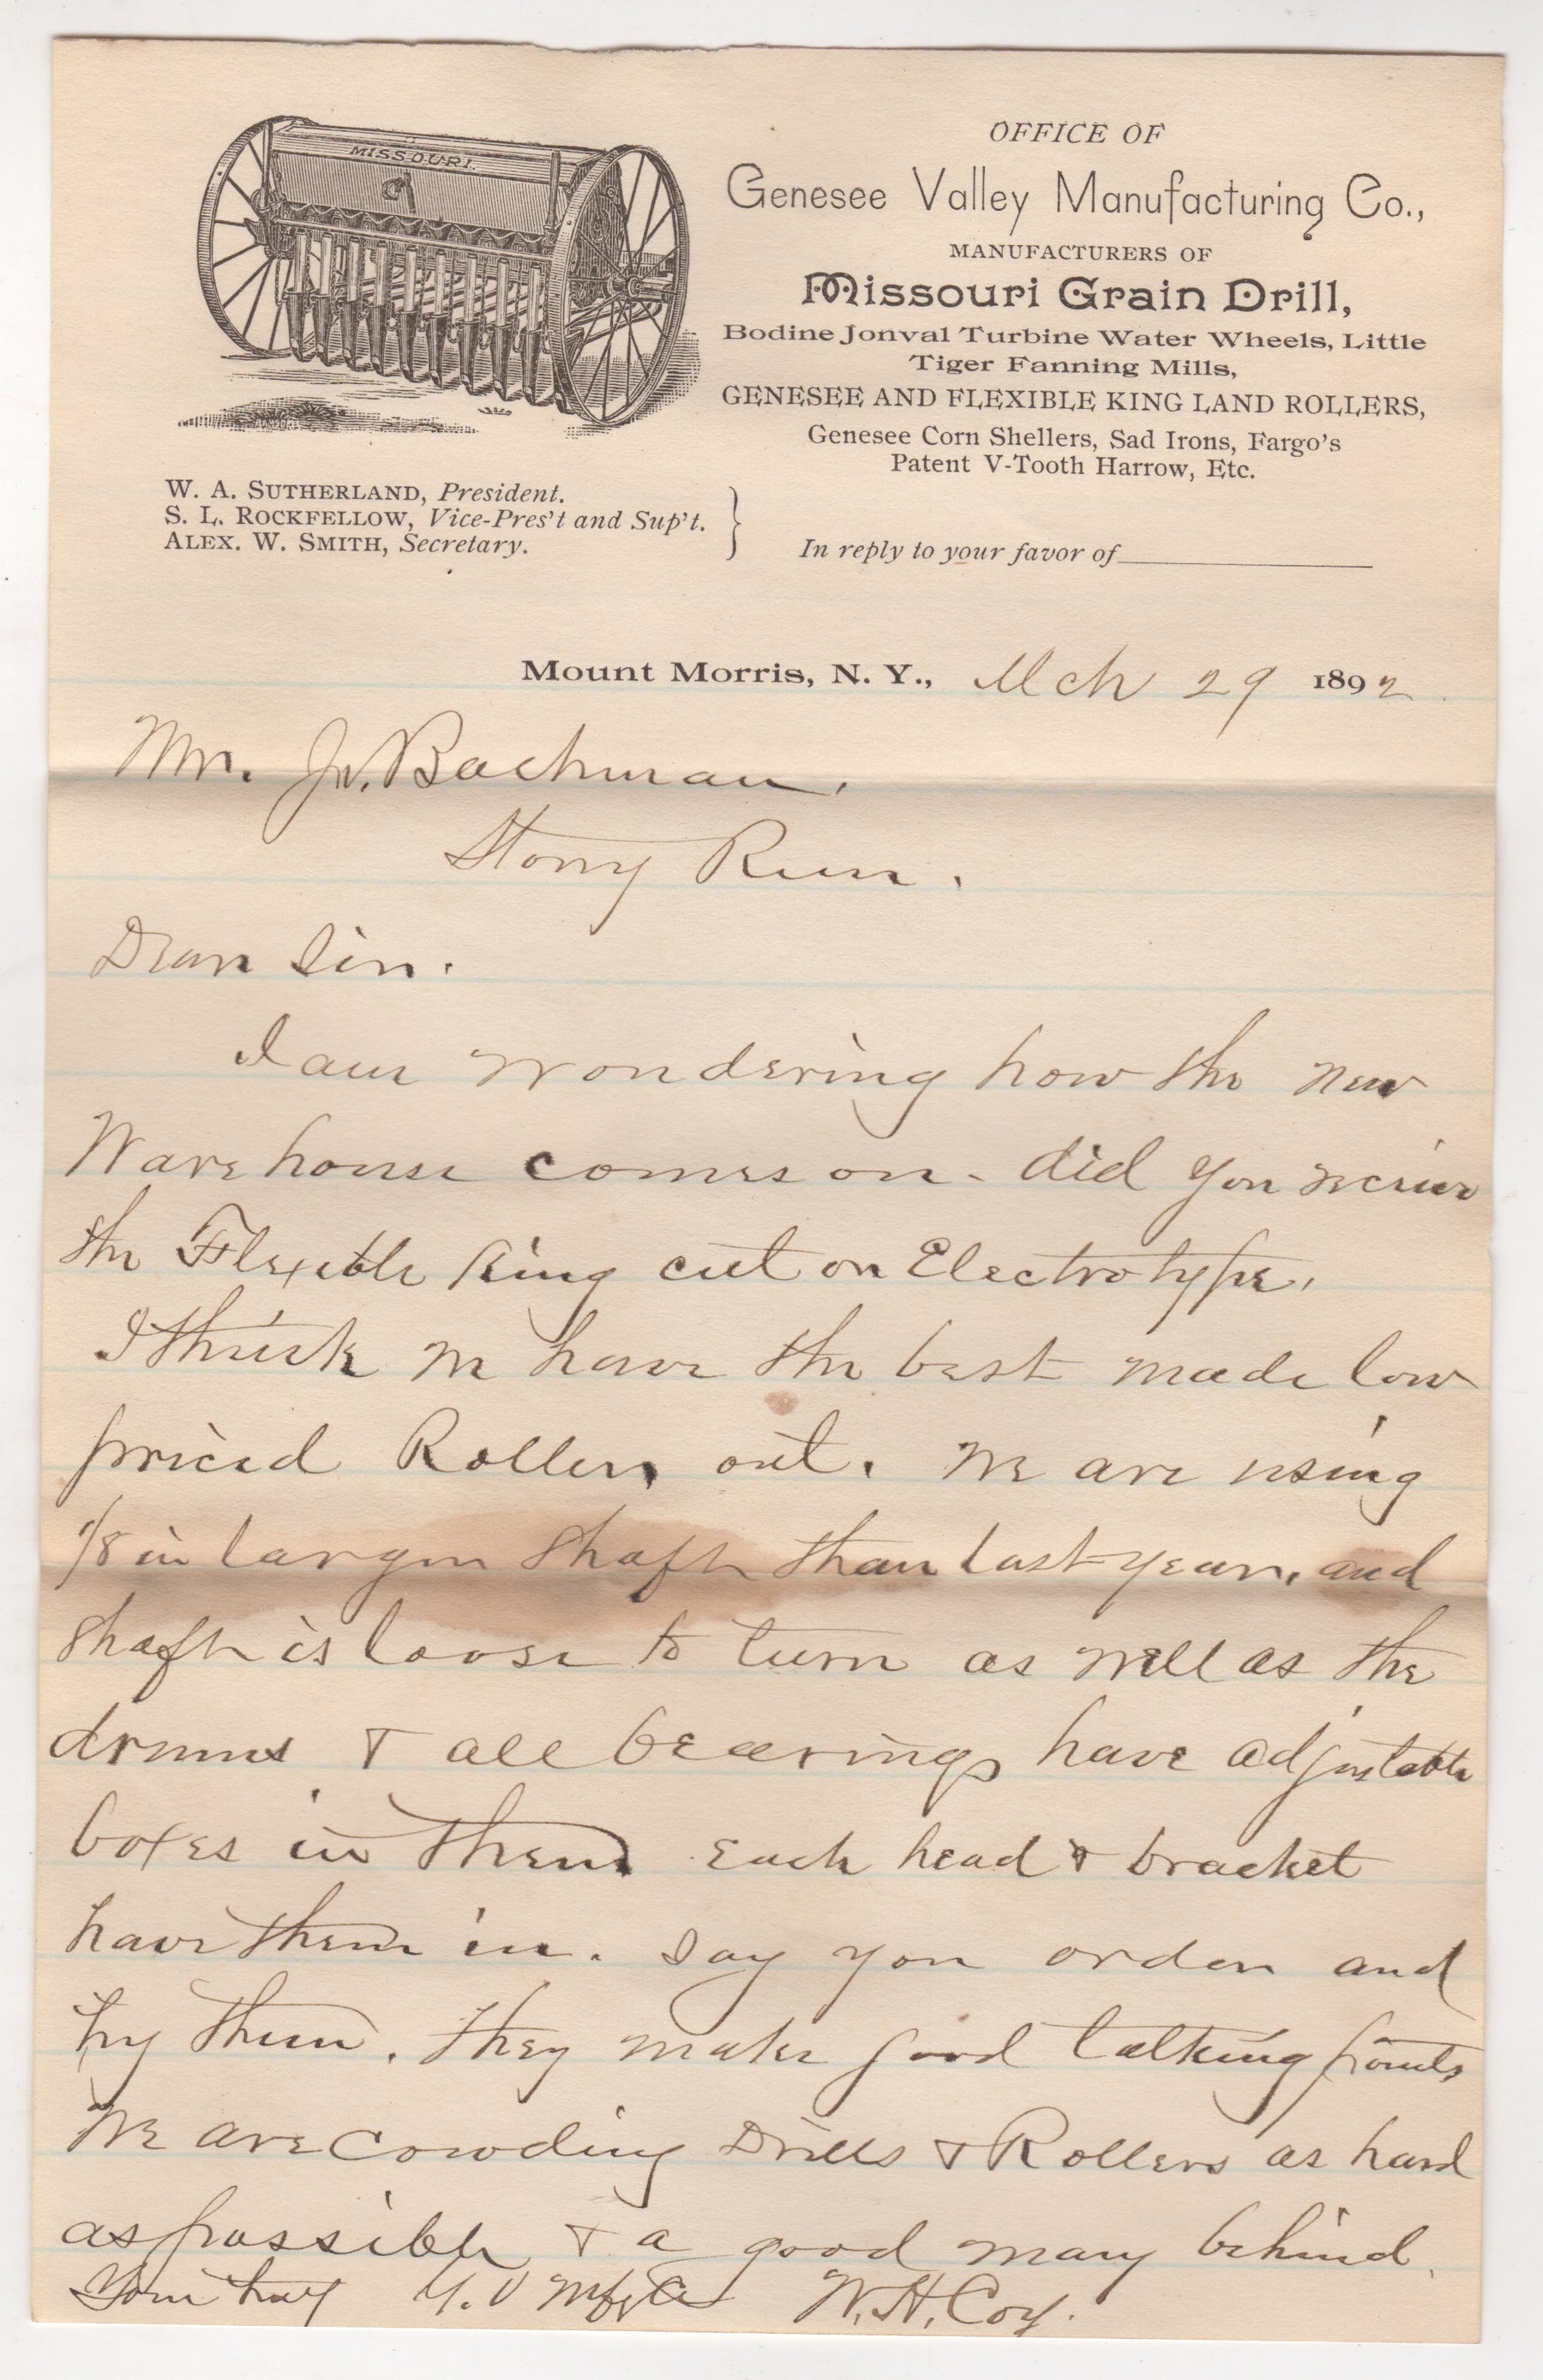 MISSOURI.
OFFICE OF
Genesee Valley Manufacturing Co.,
MANUFACTURERS OF
Missouri Grain Drill,
Bodine Jonval Turbine Water Wheels, Little
Tiger Fanning Mills,
GENESEE AND FLEXIBLE KING LAND ROLLERS,
Genesee Corn Shellers, Sad Irons, Fargo's
Patent V-Tooth Harrow, Etc.
W. A. SUTHERLAND, President.
S. L. ROCKFELLOW, Vice-Pres't and Sup't.
ALEX. W. SMITH, Secretary.
In reply to your favor of
Mount Morris, N. Y., Mch 29 1892
Mr. Bachman.
Stony Run.
Dear Sir.
I am wondering how the new
Ware house comes on - did you recieve
the Flexible King cut or Electrotype.
I think we have the best made low
priced Roller out. We are using
1/8 in larger shaft than last year, and
shaft is loose to turn as well as the
drums & all bearings have adjustable
boxes in them Each head & bracket
have them in. Say you order and
try them. they make good talking points
We are Cowding Drills & Rollers as hard
as possible & a good many behind.
G. V Mfg Co W. H. Coy.